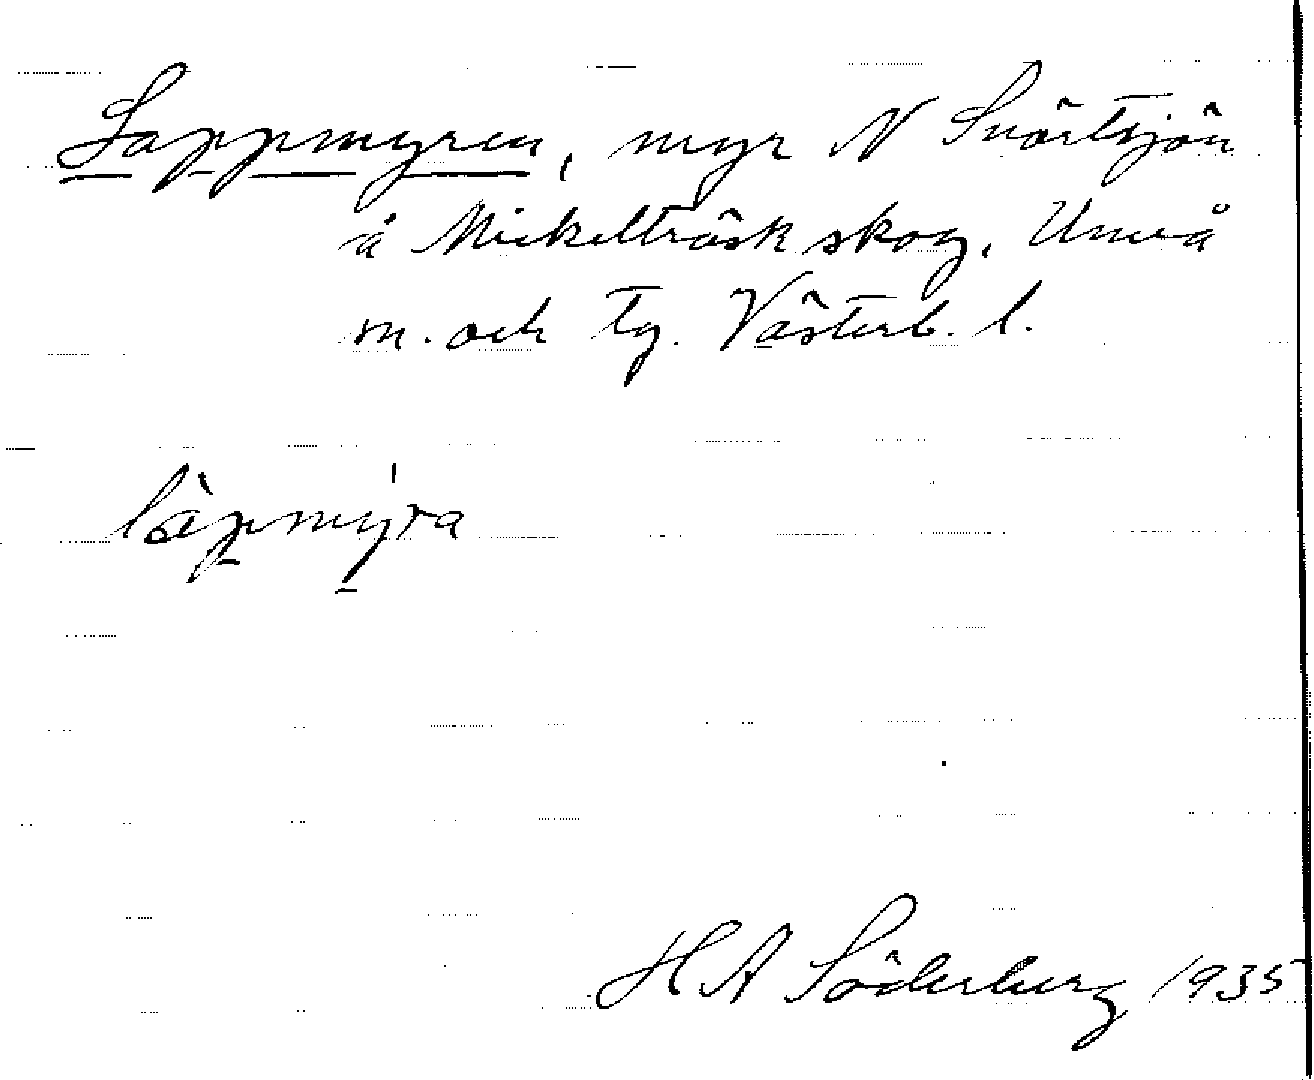 Lappmyren, myr N Snörtsjön
å Mickelträsk skog, Umeå
m. och tg. Västerb. l.
làpmy̱ra
H A Söderberg 1935